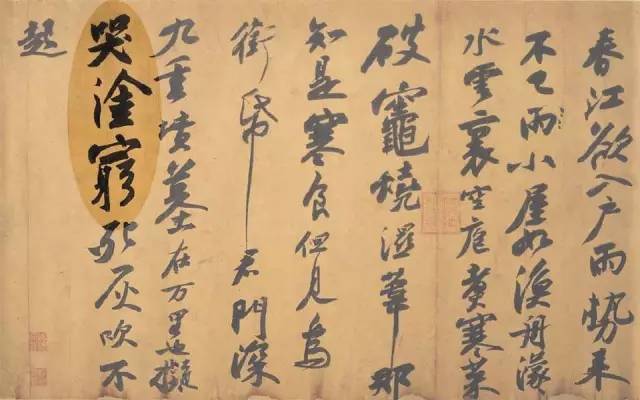 春江欲入户雨勢来
不已雨小屋如漁舟濛〻
水雲裏空庖煑寒菜
破竈燒濕葦那
知是寒食但見烏
銜帋君門深
九重墳墓在万里也擬
哭塗窮死灰吹不
起